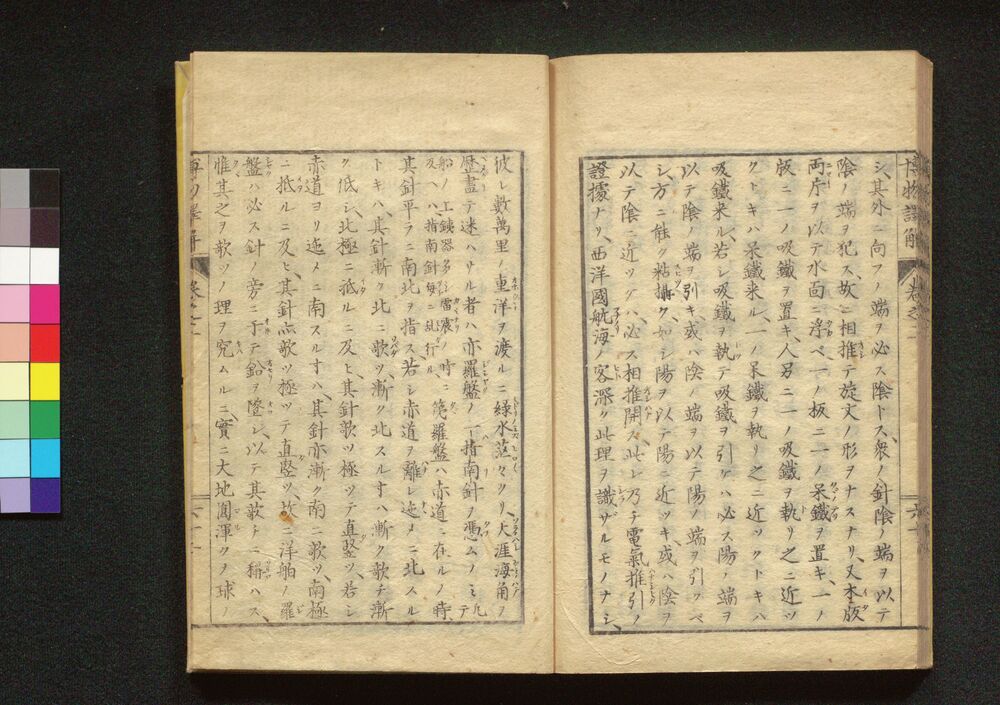 博物譯解 卷之二 六十
シ、其外ニ向フノ端ヲ必ス陰トス、衆ノ針陰ノ端ヲ以テ
陰ノ端ヲ犯ス、故ニ相推テ旋文ノ形ヲナスナリ、又木版
両片ヲ以テ水面ニ浮ベ、一ノ板ニ一ノ呆鐵ヲ置キ、一ノ
版ニ一ノ吸鐵ヲ置キ、人另ニ一ノ吸鐵ヲ執リ之ニ近ツ
クトキハ呆鐵来ル、一ノ呆鐵ヲ執リ之ニ近ツクトキハ
吸鐵来ル、若シ吸鐵ヲ執テ吸鐵ヲ引ケハ必ス陽ノ端ヲ
以テ陰ノ端ヲ引キ、或ハ陰ノ端ヲ以テ陽ノ端ヲ引クベ
シ、方ニ能ク粘攝ク、如シ陽ヲ以テ陽ニ近ツキ、或ハ陰ヲ
以テ陰ニ近ツケハ、必ス相推開ス、此レ乃チ電氣推引ノ
證據ナリ、西洋國航海ノ客深ク此理ヲ識ザルモノナシ、
彼レ數萬里ノ車洋ヲ渡ルニ緑水茫々タリ、天涯海角ノ
歴盡テ迷ハサル者ハ亦羅盤ノ一指南針ノ憑ムノミテ凡
船ノ上鐵器多シ雷震ノ時ニ
及ヘハ、指南針毎ニ乱行ル
第羅盤ハ赤道ニ在ルノ時、
其針平ラニ南北ヲ指ス若シ赤道ヲ離レ迤メニ北スル
トキハ其針漸ク北ニ歌ツ、漸ク北スルすハ漸ク歌チ漸
ク低シ、北極ニ抵ルニ及ヒ其針歌ツ極ツテ直竪ツ、若シ
赤道ヨリ迤メニ南スルすハ、其針亦漸ク南ニ歌ツ、南極
ニ抵ルニ及ヒ、其針亦歌ツ極ツテ直竪ツ、故ニ洋舶ノ羅
盤ハ必ス針ノ旁ニ于テ鉛ヲ墜シ以テ其歌チニ稱ハス、
惟其之ヲ歌ツノ理ヲ究ムルニ、實ニ大地圓渾クノ球ノ
博物譯解 卷之二